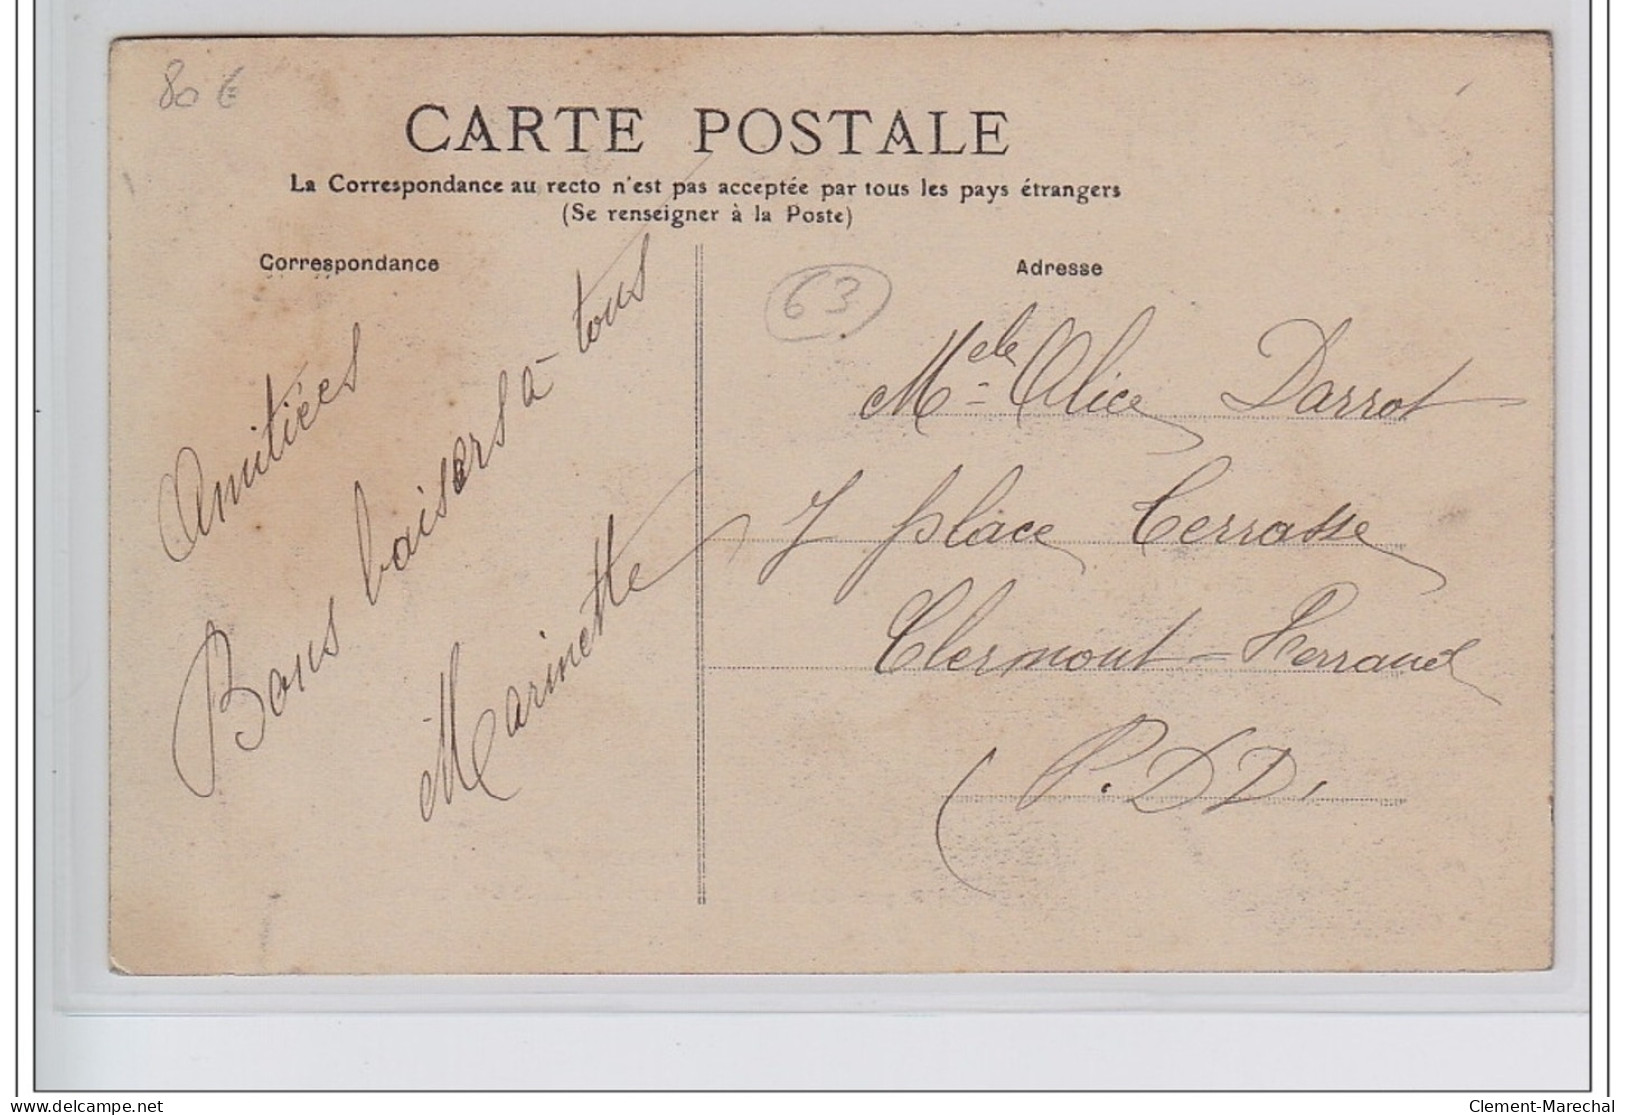 80 €
CARTE POSTALE
La Correspondance au recto n'est pas acceptée par tous les pays étrangers
(Se renseigner à la Poste)
Correspondance
Adresse
63
Amitiées
Bons baisers à tous
Marinette
Melle Alice Darrot
7 place Terrasse
Clermont-Ferrand
(P.DD.
delcampe.net
Clement-Marechal